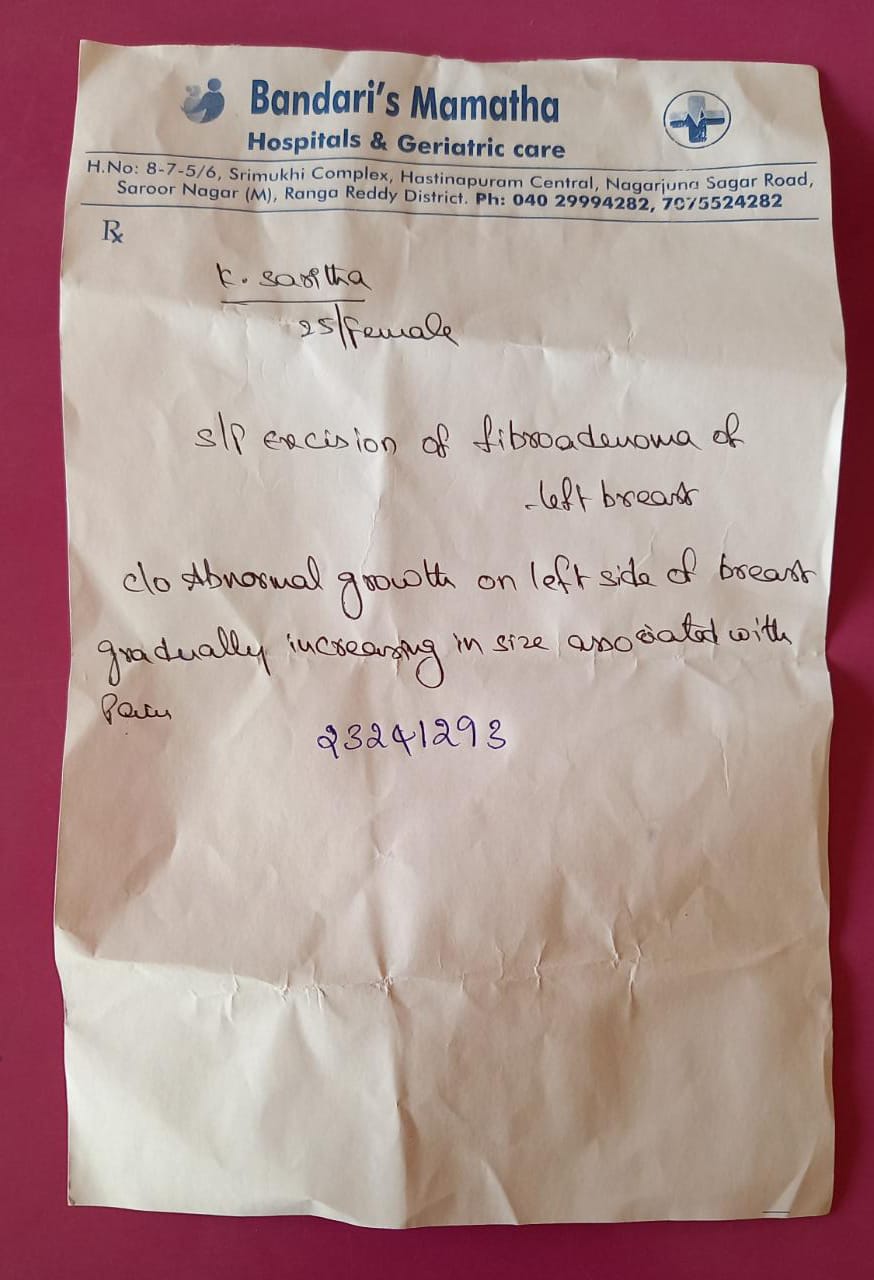 Bandari's Mamatha
Hospitals & Geriatric care
H.No: 8-7-5/6, Srimukhi Complex, Hastinapuram Central, Nagarjuna Sagar Road,
Saroor Nagar (M), Ranga Reddy District. Ph: 040 29994282, 7075524282
Rx
K. Saritha
25/Female
S/P Excision of fibroadenoma of
left breast
c/o Abnormal growth on left side of breast
gradually increasing in size associated with
Pain
23241293